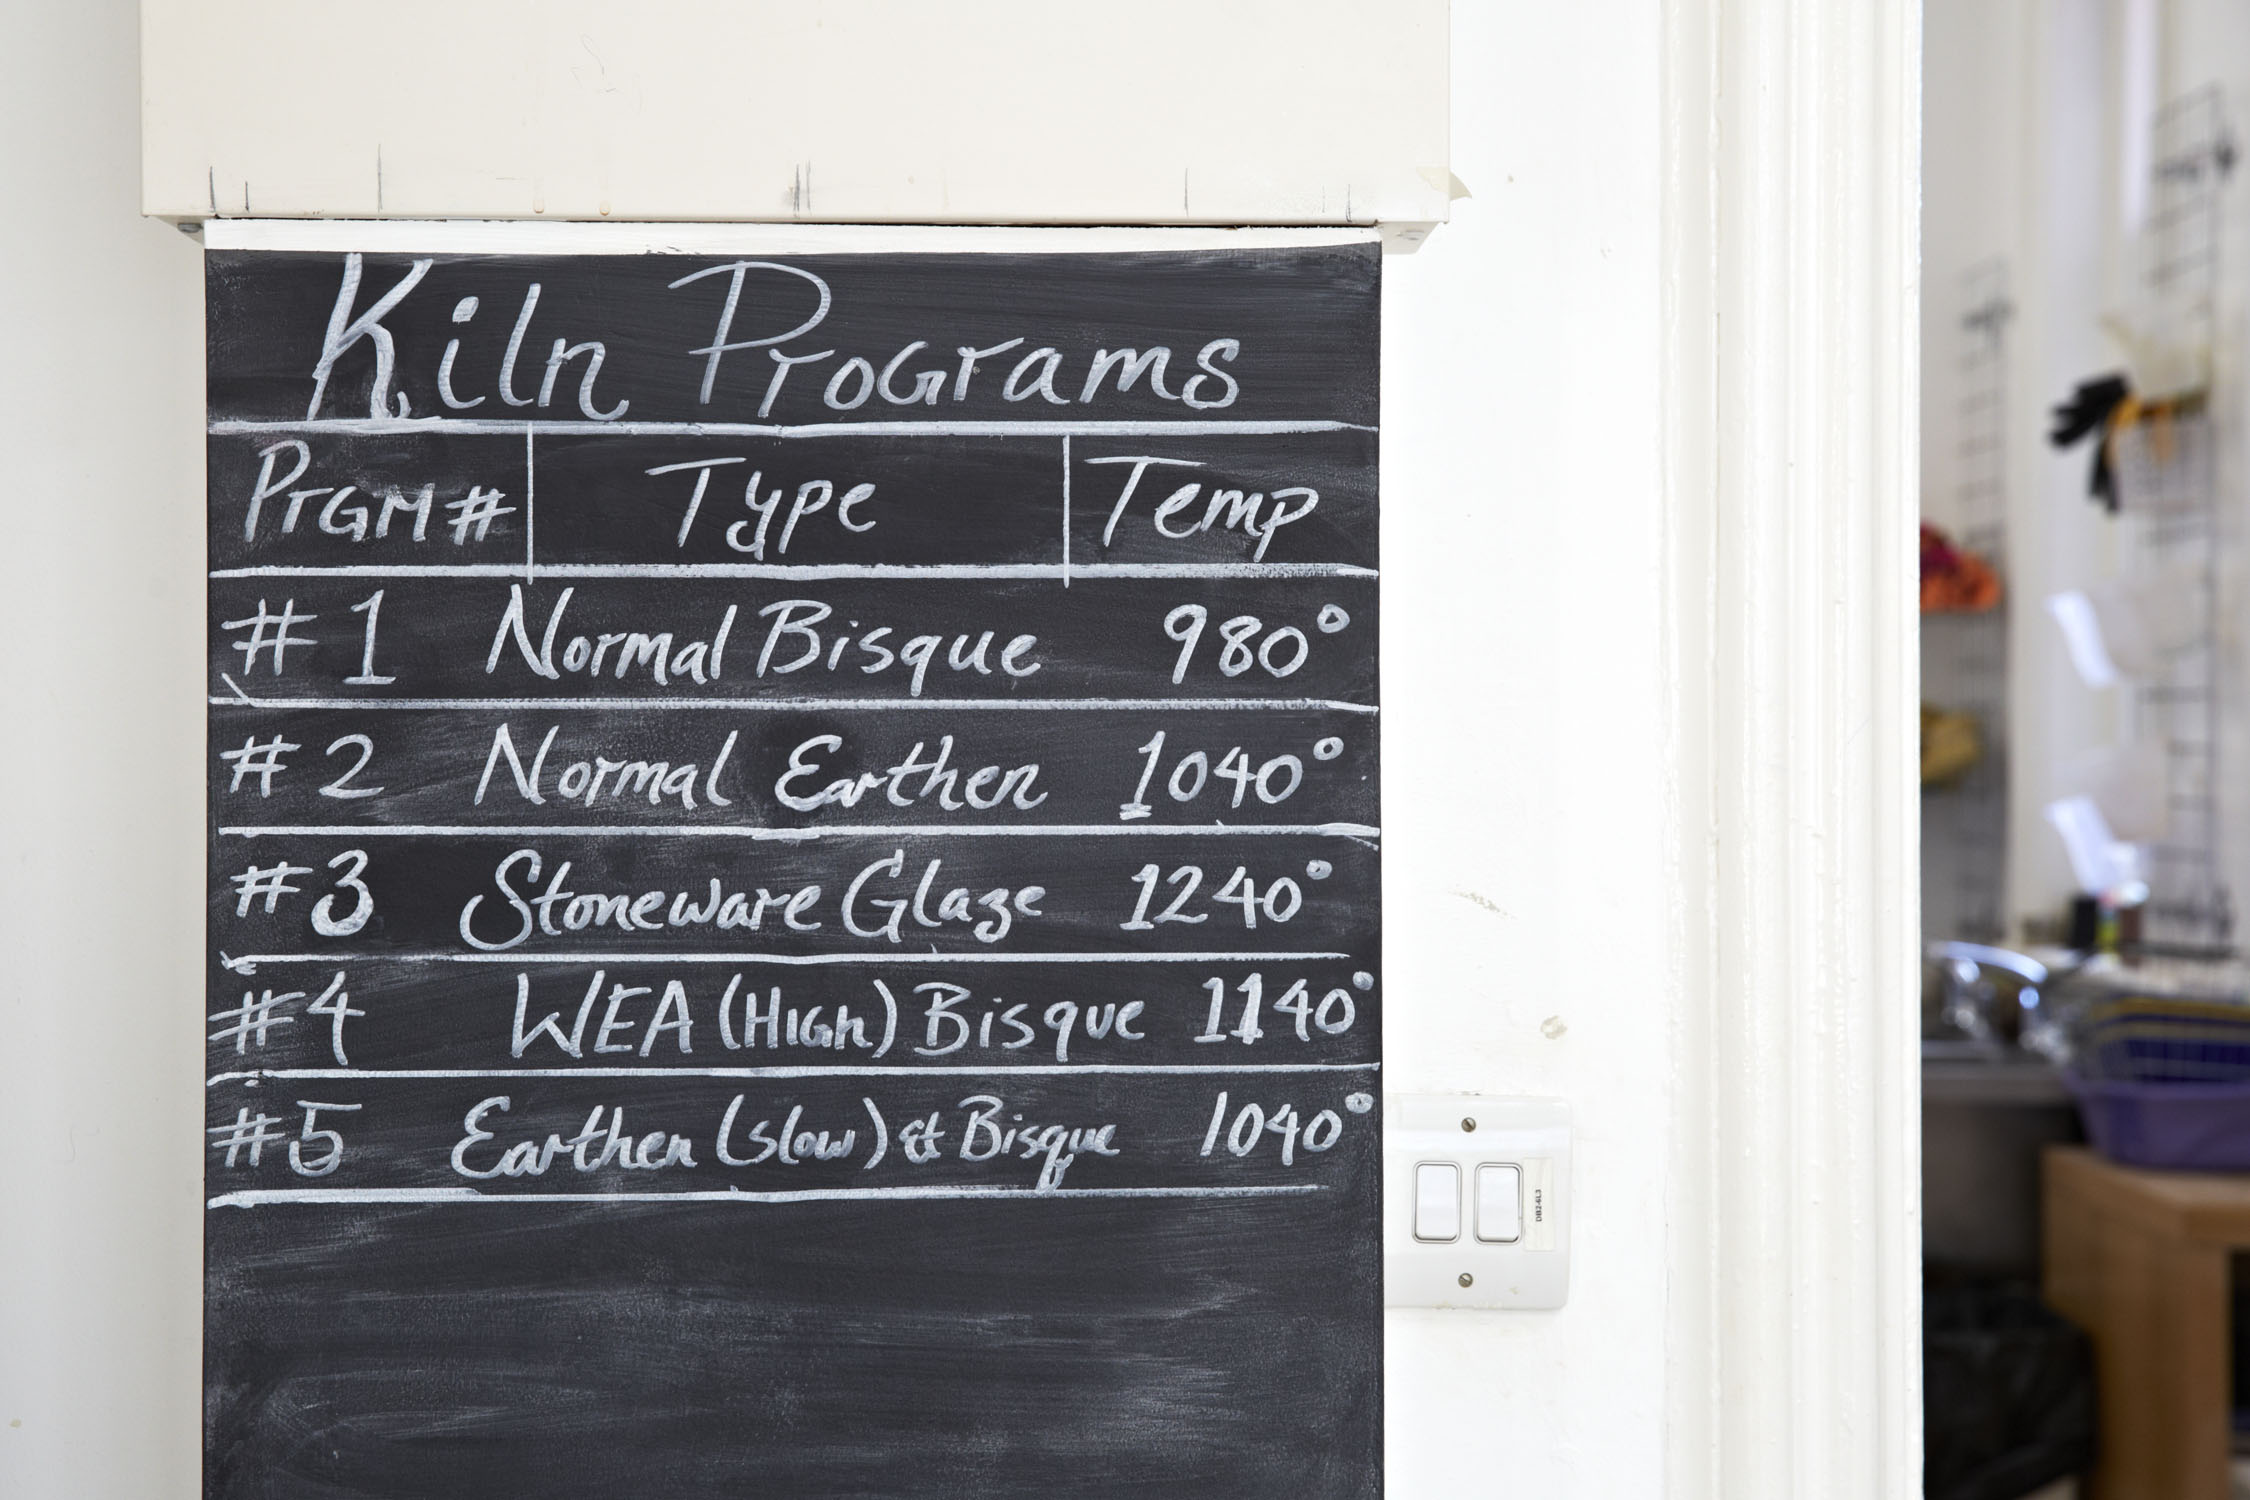 Kiln Programs
PrGM # Type Temp
#1 Normal Bisque 980°
#2 Normal Earthen 1040°
#3 Stoneware Glaze 1240°
#4 WEA (High) Bisque 1140°
#5 Earthen (slow) & Bisque 1040°
DB24L3